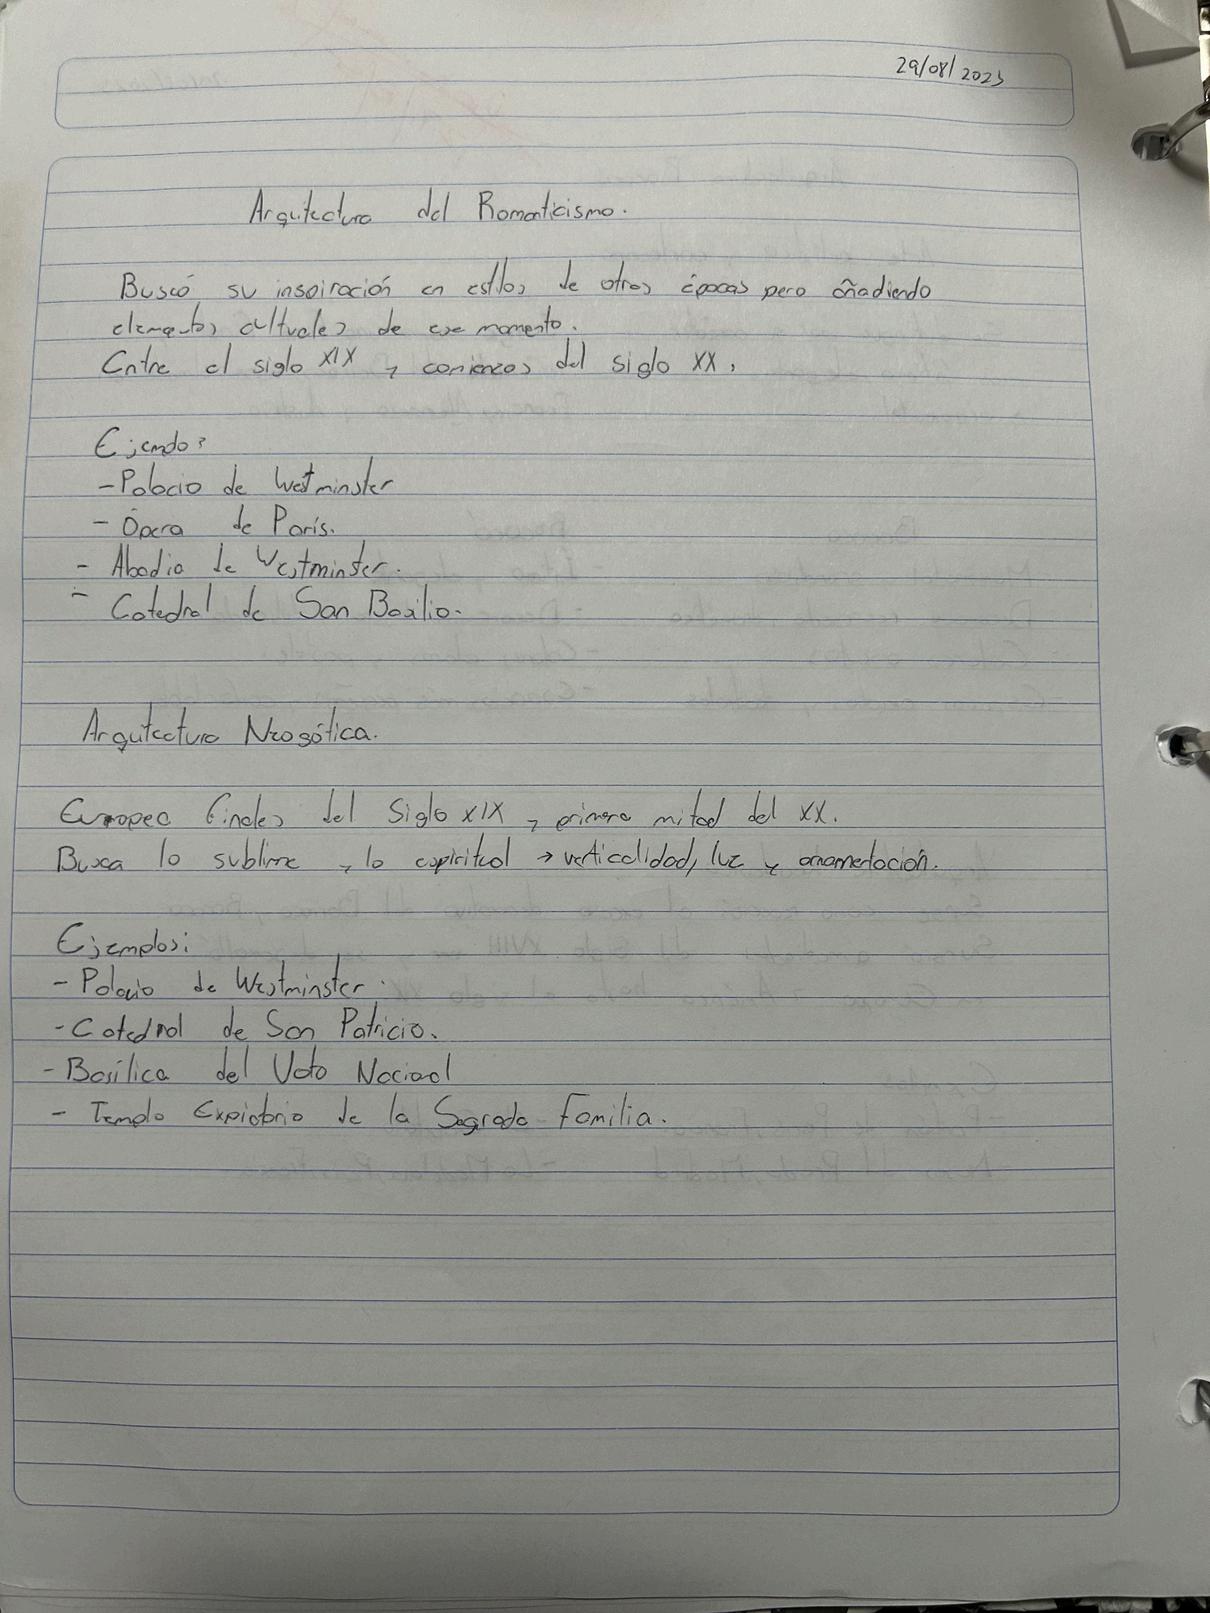 29/08/2023
Arquitectura del Romanticismo.
Buscó su inspiración en estilos de otras épocas pero añadiendo
elementos culturales de ese momento.
Entre el siglo XIX y comienzos del siglo XX.
Ejemplo:
- Palacio de Westminster
- Ópera de París.
- Abadia de Westminster.
- Catedral de San Basilio.
Arquitectura Neogótica.
Europea finales del Siglo XIX y primera mitad del XX.
Busca lo sublime y lo espiritual → verticalidad, luz y ornamentación.
Ejemplos:
- Palacio de Westminster.
- Catedral de San Patricio.
- Basílica del Voto Nacional
- Templo Expiatorio de la Sagrada Familia.